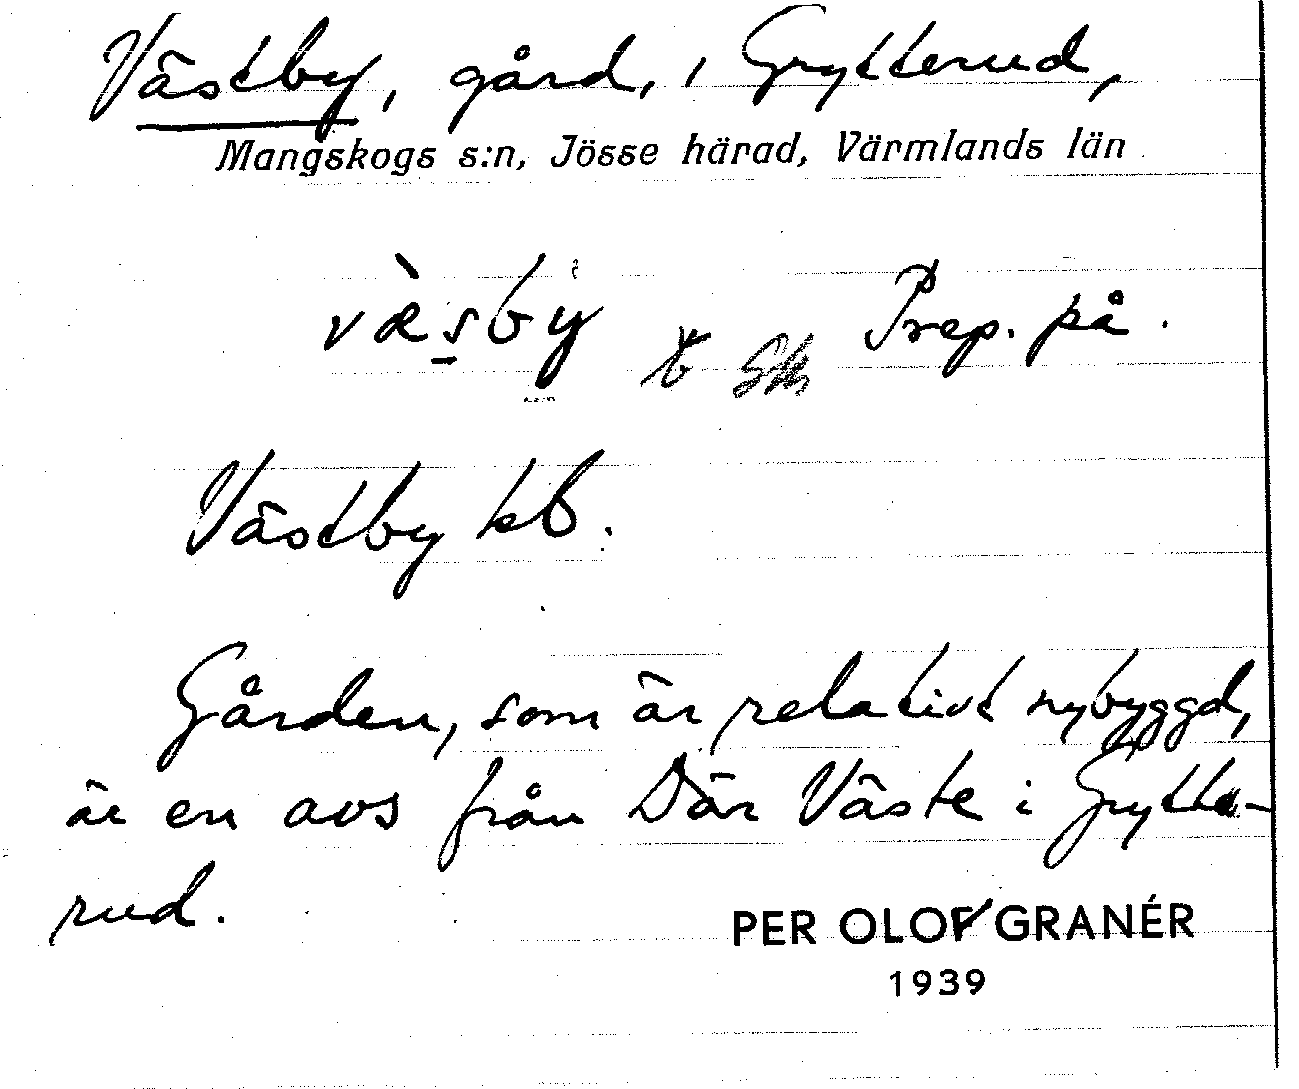 Västby, gård, i Grytterud,
Mangskogs s:n, Jösse härad, Värmlands län
væ̀sby Prep. på.
Västby kb.
Gården, som är relativt nybyggd,
är en avs från Där Väste i Grytte-
rud.
PER OLOF GRANÉR
1939